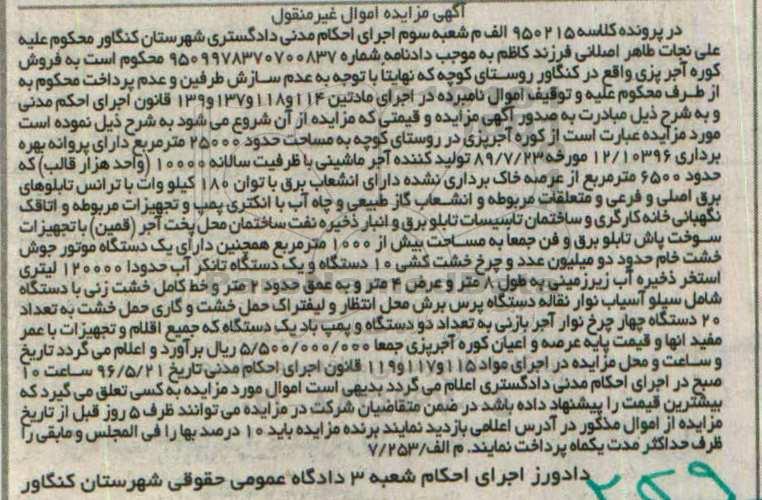 آگهی مزایده اموال غیرمنقول
در پرونده کلاسه ۹۵۰۲۱۵ الف م شعبه سوم اجرای احکام مدنی دادگستری شهرستان کنگاور محکوم علیه
علی نجات طاهر اصلانی فرزند کاظم به موجب دادنامه شماره ۹۵۰۹۹۷۸۳۷۰۷۰۰۸۳۷ محکوم است به فروش
کوره آجر پزی واقع در کنگاور روستای کوچه که نهایتا با توجه به عدم سازش طرفین و عدم پرداخت محکوم به
از طرف محکوم علیه و توقیف اموال نامبرده در اجرای مادتین ۱۱۴و۱۱۸و۱۳۷و۱۳۹ قانون اجرای احکم مدنی
و به شرح ذیل مبادرت به صدور آگهی مزایده و قیمتی که مزایده از آن شروع می شود به شرح ذیل نموده است
مورد مزایده عبارت است از کوره آجرپزی در روستای کوچه به مساحت حدود ۲۵۰۰۰ مترمربع دارای پروانه بهره
برداری ۱۲/۱۰۳۹۶ مورخه ۸۹/۷/۲۳ تولید کننده آجر ماشینی با ظرفیت سالانه ۱۰۰۰۰ (واحد هزار قالب) که
حدود ۶۵۰۰ مترمربع از عرصه خاک برداری نشده دارای انشعاب برق با توان ۱۸۰ کیلو وات با ترانس تابلوهای
برق اصلی و فرعی و متعلقات مربوطه و انشعاب گاز طبیعی و چاه آب با انکتری پمپ و تجهیزات مربوطه و اتاقک
نگهبانی خانه کارگری و ساختمان تاسیسات تابلو برق و انبار ذخیره نفت ساختمان محل پخت آجر (قمین) با تجهیزات
سوخت پاش تابلو برق و فن جمعا به مساحت بیش از ۱۰۰۰ مترمربع همچنین دارای یک دستگاه موتور جوش
خشت خام حدود دو میلیون عدد و چرخ خشت کشی ۱۰ دستگاه و یک دستگاه تانکر آب حدودا ۱۲۰۰۰۰ لیتری
استخر ذخیره آب زیرزمینی به طول ۸ متر و عرض ۴ متر و به عمق حدود ۲ متر و خط کامل خشت زنی با دستگاه
شامل سیلو آسیاب نوار نقاله دستگاه پرس برش محل انتظار و لیفتراک حمل خشت و گاری حمل خشت به تعداد
۲۰ دستگاه چهار چرخ نوار آجر بازنی به تعداد دو دستگاه و پمپ باد یک دستگاه که جمیع اقلام و تجهیزات با عمر
مفید انها و قیمت پایه عرصه و اعیان کوره آجرپزی جمعا ۵/۵۰۰/۰۰۰/۰۰۰ ریال برآورد و اعلام می گردد تاریخ
و ساعت و محل مزایده در اجرای مواد ۱۱۵و۱۱۷و۱۱۹ قانون اجرای احکام مدنی تاریخ ۹۶/۵/۲۱ ساعت ۱۰
صبح در اجرای احکام مدنی دادگستری اعلام می گردد بدیهی است اموال مورد مزایده به کسی تعلق می گیرد که
بیشترین قیمت را پیشنهاد داده باشد در ضمن متقاضیان شرکت در مزایده می توانند ظرف ۵ روز قبل از تاریخ
مزایده از اموال مذکور در آدرس اعلامی بازدید نمایند برنده مزایده باید ۱۰ درصد بها را فی المجلس و مابقی را
ظرف حداکثر مدت یکماه پرداخت نمایند. م الف/۷/۲۵۳
دادورز اجرای احکام شعبه ۳ دادگاه عمومی حقوقی شهرستان کنگاور